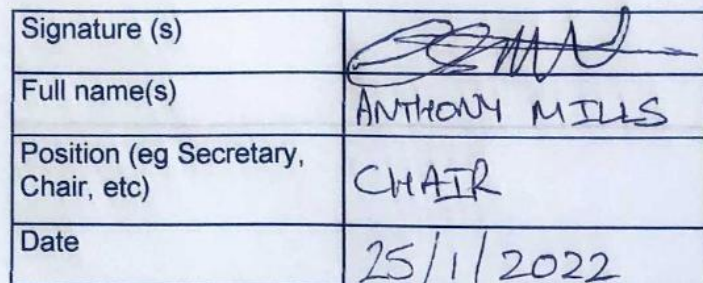 Signature (s)
Full name(s)
ANTHONY MILLS
Position (eg Secretary,
Chair, etc)
CHAIR
Date
25/1/2022